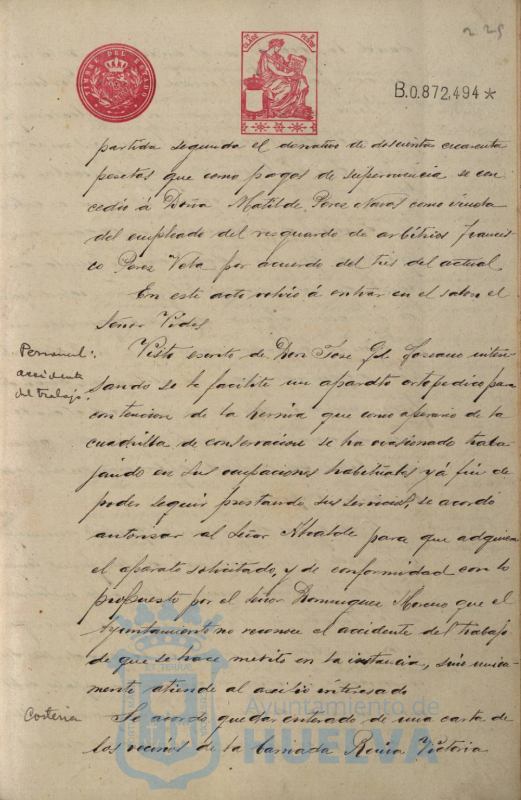 225
TIMBRE DEL ESTADO
B.0.872,494*
partida segunda el donativo de doscientas cuarenta
pesetas que como pagas de supervivencia se con
cedio á Doña Matilde Perez Navas como viuda
del empleado del resguardo de arbitrios Francis
co Perez Vela por acuerdo del tres del actual
En este acto volvio á entrar en el salon el
Señor Vides
Personal:
accidente
del trabajo.
Visto escrito de Don Jose Gil Lozano intere
sando se le facilite un aparato ortopedico para
contencion de la hernia que como operario de la
cuadrilla de conservacion se ha ocasionado traba
jando en sus ocupaciones habituales y á fin de
poder seguir prestando sus servicios, se acordó
autorizar al Señor Alcalde para que adquiera
el aparato solicitado, y de conformidad con lo
propuesto por el Señor Dominguez Moreno que el
Ayuntamiento no reconoce el accidente del trabajo
de que se hace merito en la instancia, sino unica
mente atiende al auxilio interesado
Se acordo quedar enterado de una carta de
los vecinos de la Barriada Reina Victoria
Ayuntamiento de
HUELVA